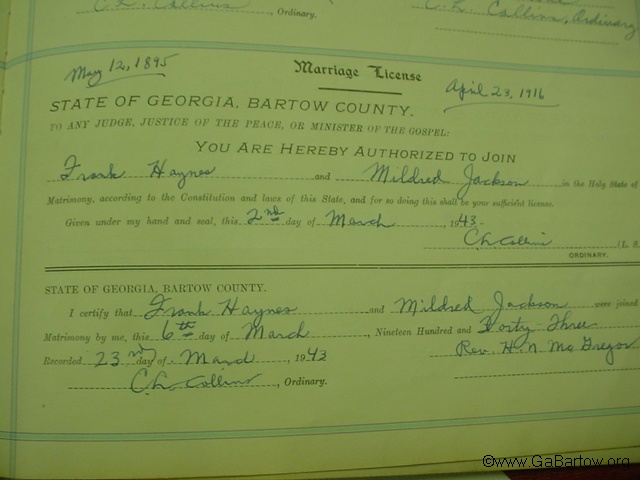 C. L. Collins, Ordinary.
C. L. Collins, Ordinary
May 12, 1895
Marriage License
April 23, 1916
STATE OF GEORGIA, BARTOW COUNTY.
TO ANY JUDGE, JUSTICE OF THE PEACE, OR MINISTER OF THE GOSPEL:
YOU ARE HEREBY AUTHORIZED TO JOIN
Frank Haynes and Mildred Jackson in the Holy State of
Matrimony, according to the Constitution and laws of this State, and for so doing this shall be your sufficient license.
Given under my hand and seal, this 2nd day of March, 1943.
C L Collins (L. S.
ORDINARY.
STATE OF GEORGIA, BARTOW COUNTY.
I certify that Frank Haynes and Mildred Jackson were joined
Matrimony by me, this 6th day of March, Nineteen Hundred and Forty Three
Rev. H. N. McGregor
Recorded 23rd day of March, 1943
C. L. Collins, Ordinary.
©www.GaBartow.org